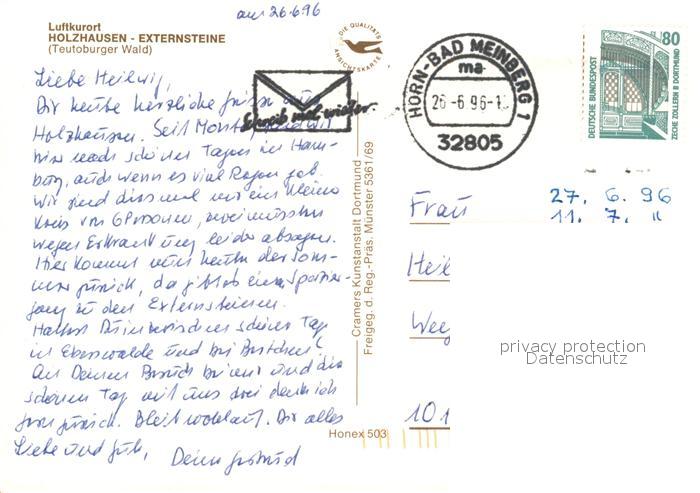 am 26.6.96
Luftkurort
HOLZHAUSEN - EXTERNSTEINE
(Teutoburger Wald)
DIE QUALITÄTS
ANSICHTSKARTE
Liebe Heilwig,
Dir heute herzliche Grüße aus
Holzhausen. Seit Montag sind wir
hier nach schönen Tagen in Ham-
burg, auch wenn es viel Regen gab.
Wir sind diesmal nur ein kleiner
Kreis von 6 Personen, zwei mussten
wegen Erkrankung leider absagen.
Hier kommt nun heute der Som-
mer zurück, da gibt es einen Spazier-
gang zu den Externsteinen.
Hattest Du inzwischen schöne Tage
in Eberswalde und bei
An Deinen Besuch bei mir und den
schönen Tag mit uns drei denke ich
gern zurück. Bleib wohlauf. Dir alles
Liebe und Gute,
Deine Gertrud
Schreib mal wieder.
HORN-BAD MEINBERG 1
ma
26-6.96-1
32805
80
DEUTSCHE BUNDESPOST
ZECHE ZOLLERN II DORTMUND
Cramers Kunstanstalt Dortmund
Freigeg. d. Reg.-Präs. Münster 5361/69
Honex 503
27. 6. 96
11. 7. "
Frau
Heil
Weg
101
privacy protection
Datenschutz